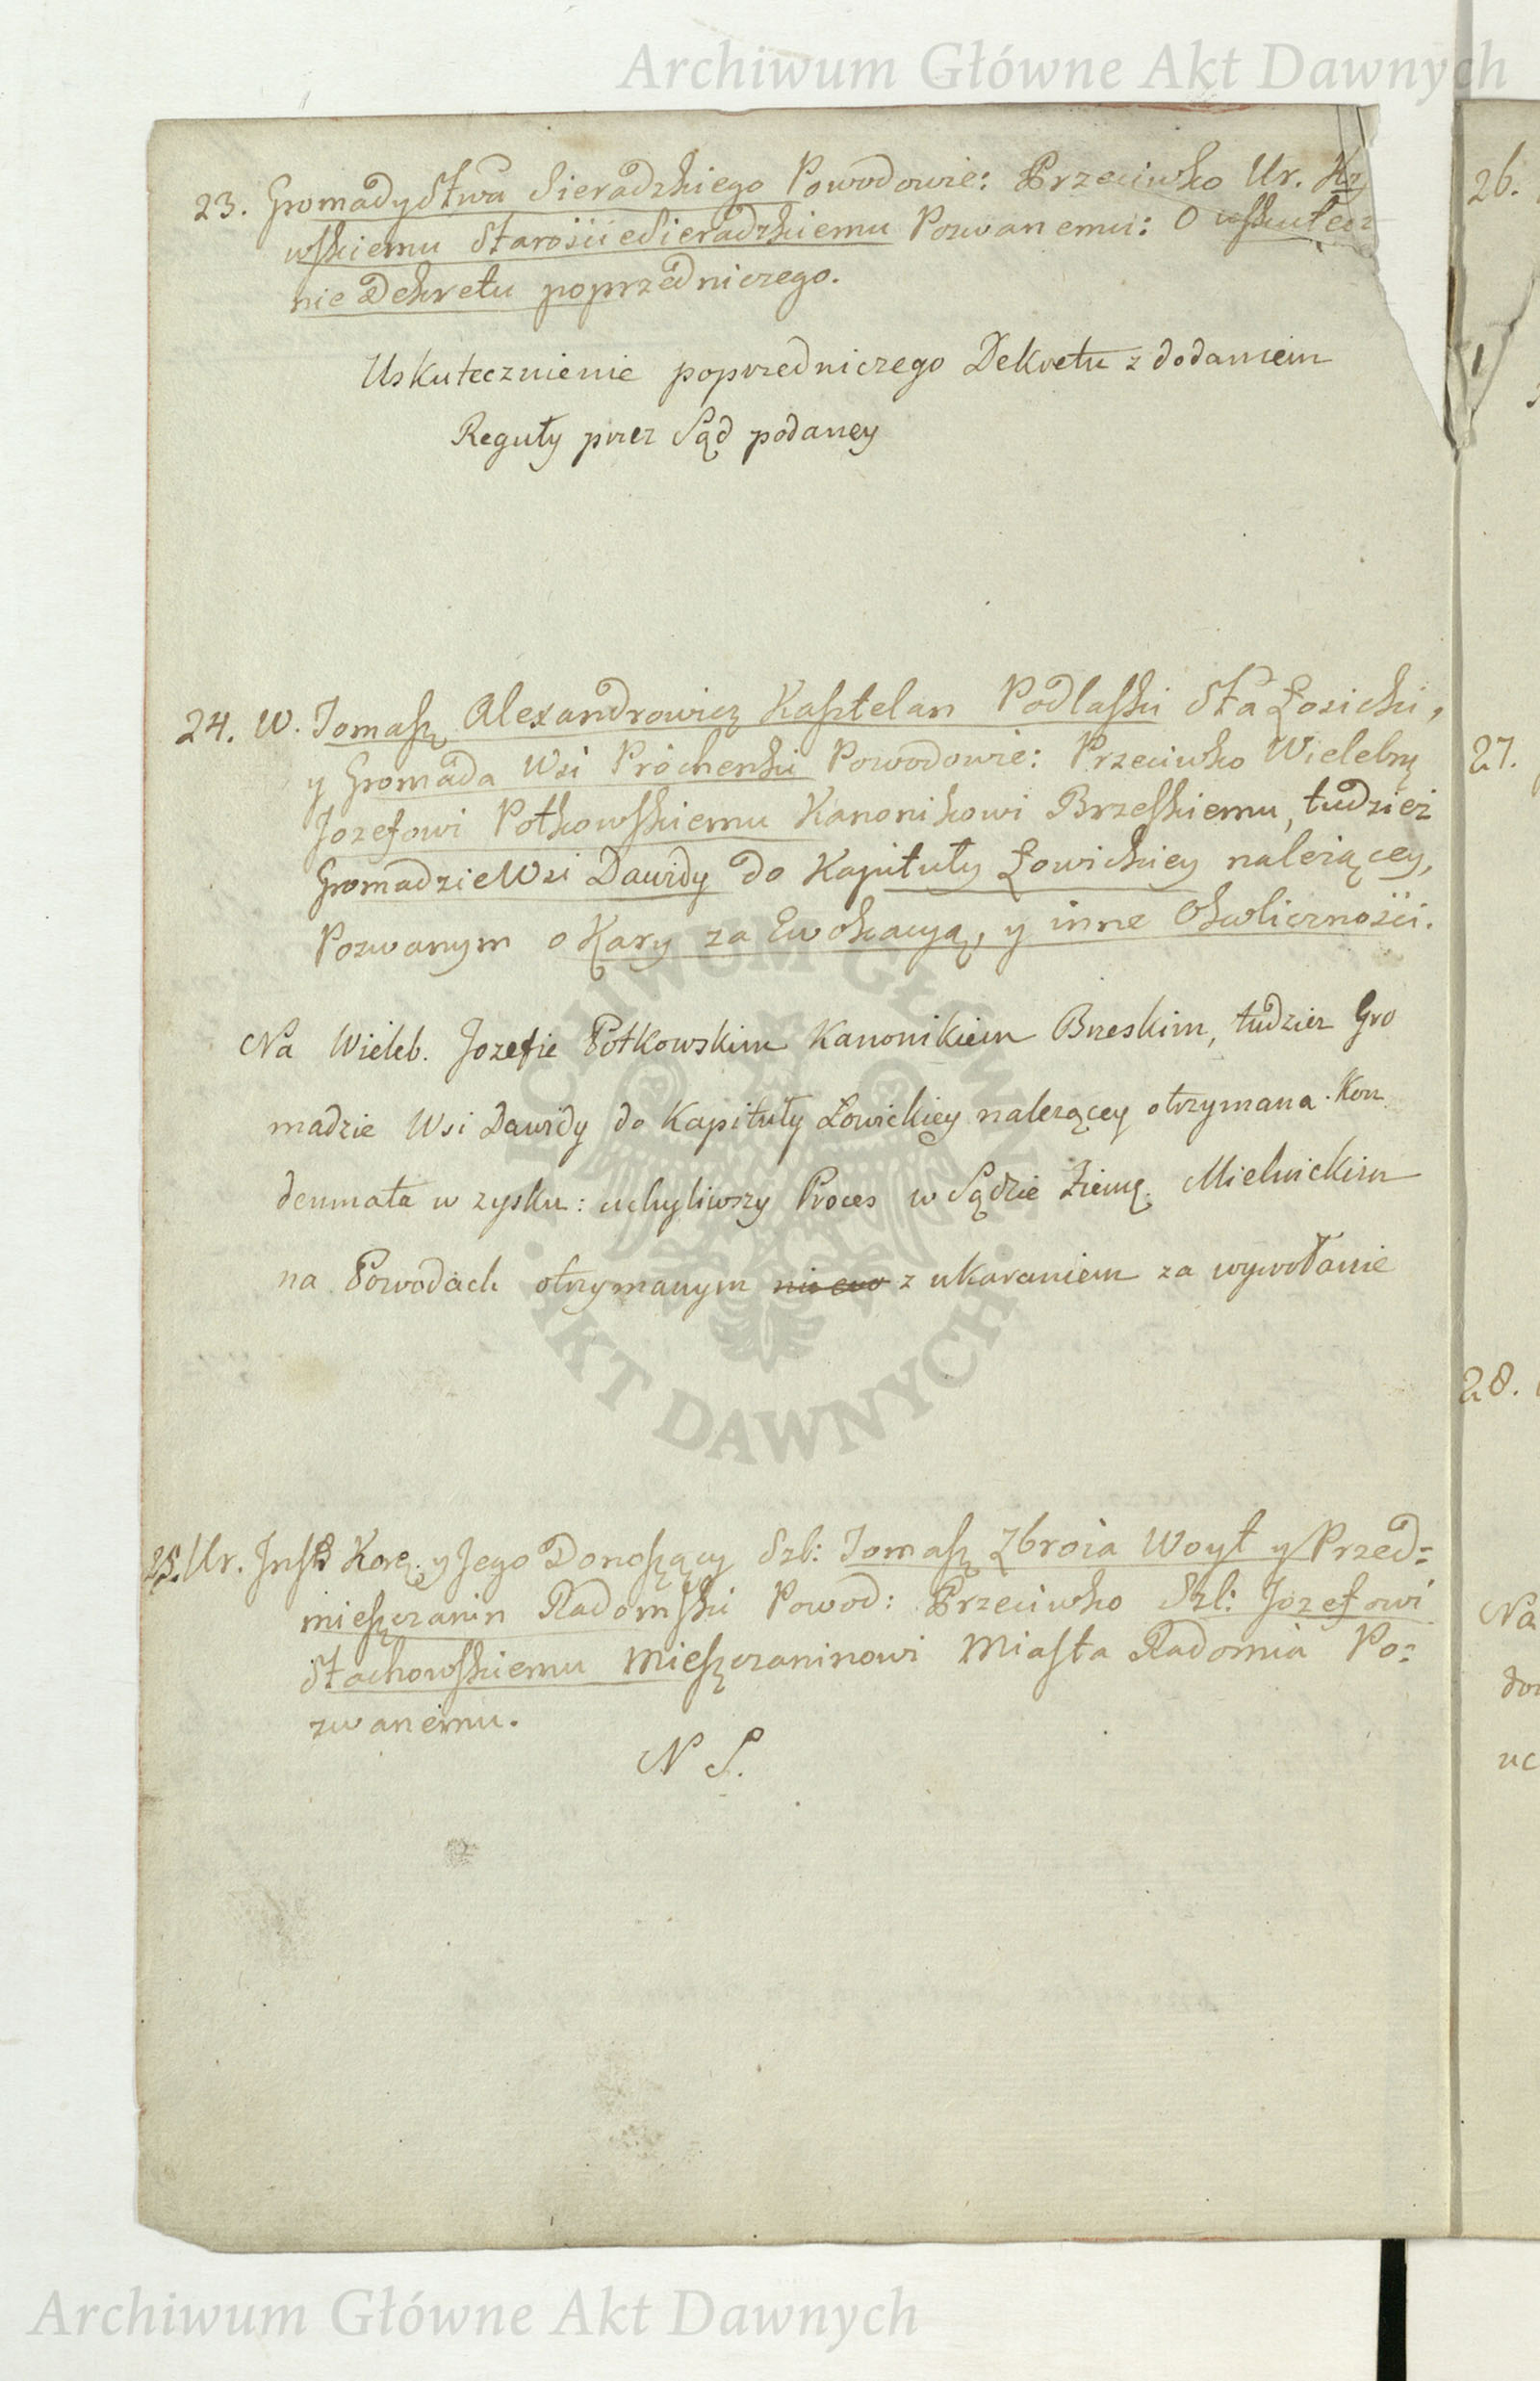 Archiwum Główne Akt Dawnych
23. Gromady Stwa Sieradzkiego Powodowie: Przeciwko Ur.
wskiemu Starosiie Sieradzkiemu Pozwanemu: O uskutecz
nie Dekretu poprzedniczego.
Uskutecznienie poprzedniczego Dekretu z dodaniem
Reguły przez Sąd podaney
24. W. Tomasz Alexandrowicz Kasztelan Podlaski Sta Łosicki,
y Gromada Wsi Próchenki Powodowie: Przeciwko Wielebnę
Jozefowi Połkowskiemu Kanonikowi Brzeskiemu, tudzież
Gromadzie Wsi Dawidy do Kapituły Łowickiey należącey,
Pozwanym o Kary za Ewokacyą, y inne Okoliczności.
Na Wieleb. Jozefie Połkowskim Kanonikiem Brzeskim, tudziez Gro
madzie Wsi Dawidy do Kapituły Łowickiey nalezącey otrzymana Kon
demnata w zysku: uchyliwszy Proces w Sądzie Ziemę. Mielnickim
na Powodach otrzymanym z ukaraniem za wywołanie
25. Ur. Inst Korę. y Jego Donoszący Szl: Tomasz Zbroia Woyt y Przed=
mieszczanin Radomski Powod: Przeciwko Szl: Jozefowi
Stachowskiemu Mieszczaninowi Miasta Radomia Po=
zwanemu.
N S.
26.
27.
28.
Na
uc
ARCHIWUM GŁÓWNE · AKT DAWNYCH ·
Archiwum Główne Akt Dawnych